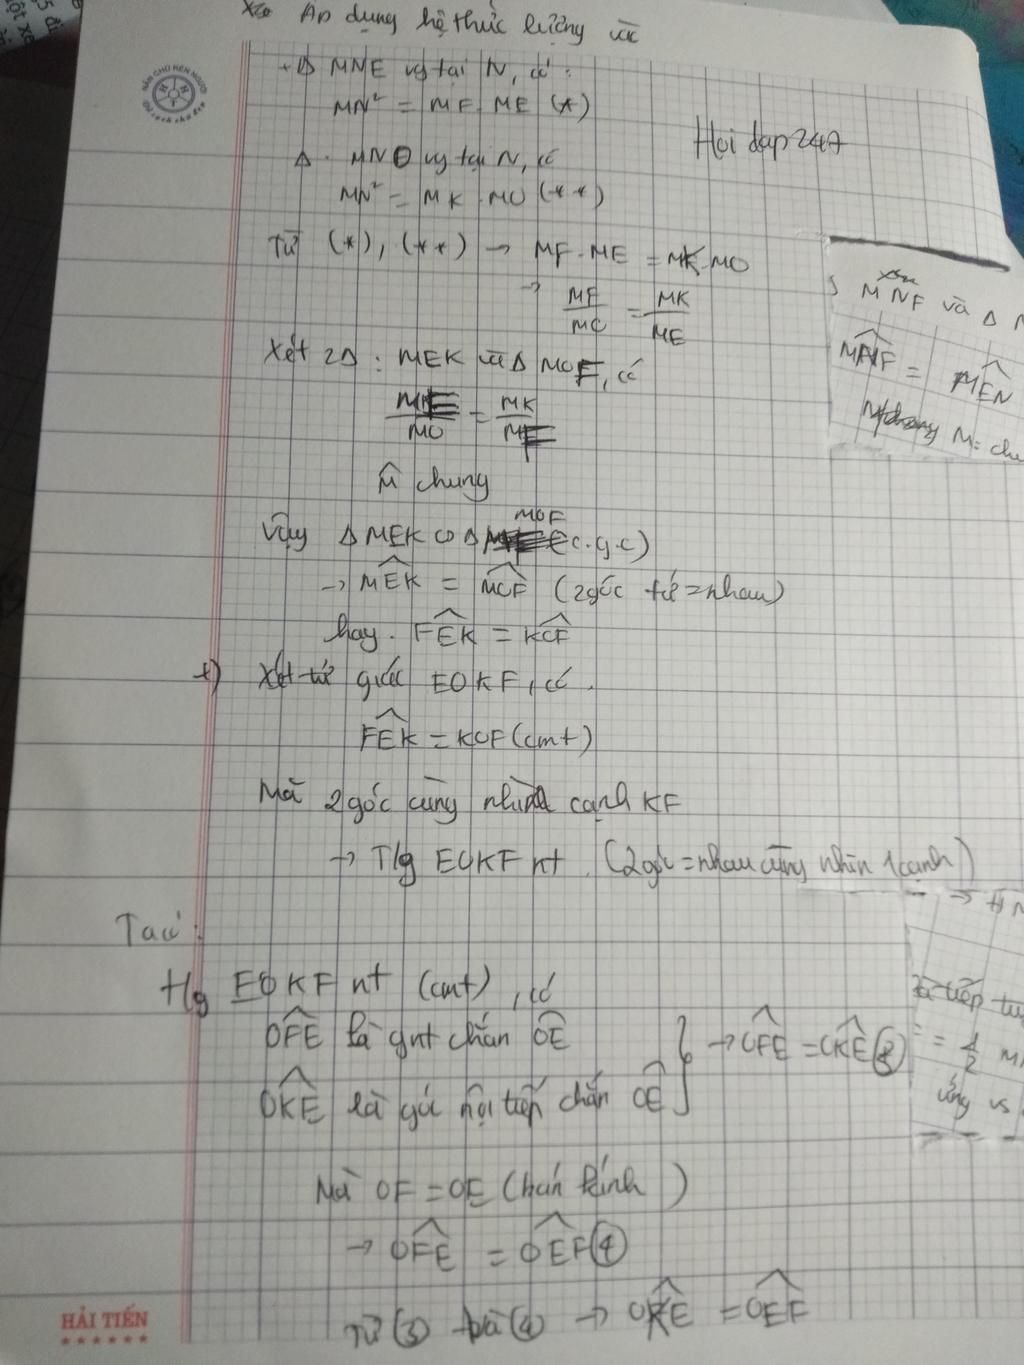 Áp dụng hệ thức lượng vào
+ Δ MNE vg tại N, có :
MN² = MF . ME (*)
Hoi dap 247
Δ . MNO vg tại N, có
MN² = MK . MO (**)
Từ (*), (**) → MF . ME = MK . MO
→ MF/MO = MK/ME
Xét 2Δ : MEK và Δ MOF, có
ME/MO = MK/MF
M̂ chung
Vậy Δ MEK ∽ Δ MOF (c.g.c)
→ MEK = MOF (2góc tứ = nhau)
hay . FEK = KOF
+) Xét tứ giác EOKF, có .
FEK = KOF (cmt)
Mà 2 góc cùng nhìn cạnh KF
→ T/g EOKF nt . (2góc = nhau cùng nhìn 1 cạnh)
Ta có :
t/g EOKF nt (cmt) , có
OFE là gnt chắn OE
→ OFE = OKE (3)
OKE là góc nội tiếp chắn OE
Mà OF = OE (bán kính)
→ OFE = OEF (4)
Từ (3) và (4) → OKE = OEF
MNF và Δ M
MNF = MEN
M chu
→ HN
là tiếp tuy
= 1/2
ứng vs
NẮN CHỮ RÈN NGƯỜI
HẢI TIẾN